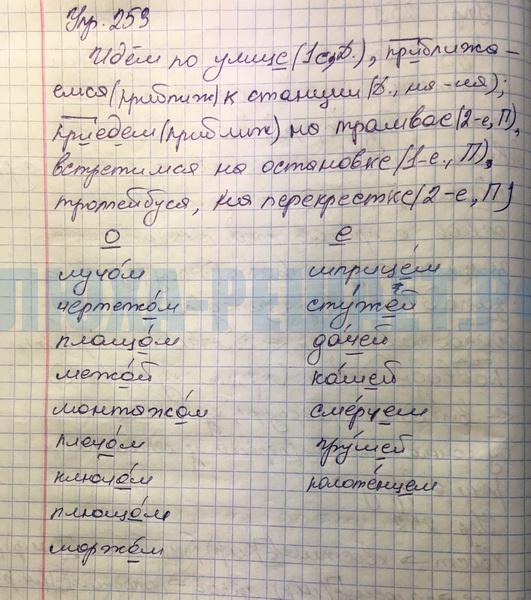 Упр. 253
Идём по улице (1с, Д.), приближа-
емся (приближ) к станции (Д., ия-ия);
приедем (приближ) на трамвае (2-е, П),
встретимся на остановке (1-е., П),
троллейбуса, на перекрестке (2-е, П)
о е
лучо́м шприце́м
чертежо́м сту́жей
плащо́м да́чей
межо́й ка́шей
монтажо́м сме́рчем
плечо́м гру́шей
ключо́м полоте́нцем
плющо́м
моржо́м